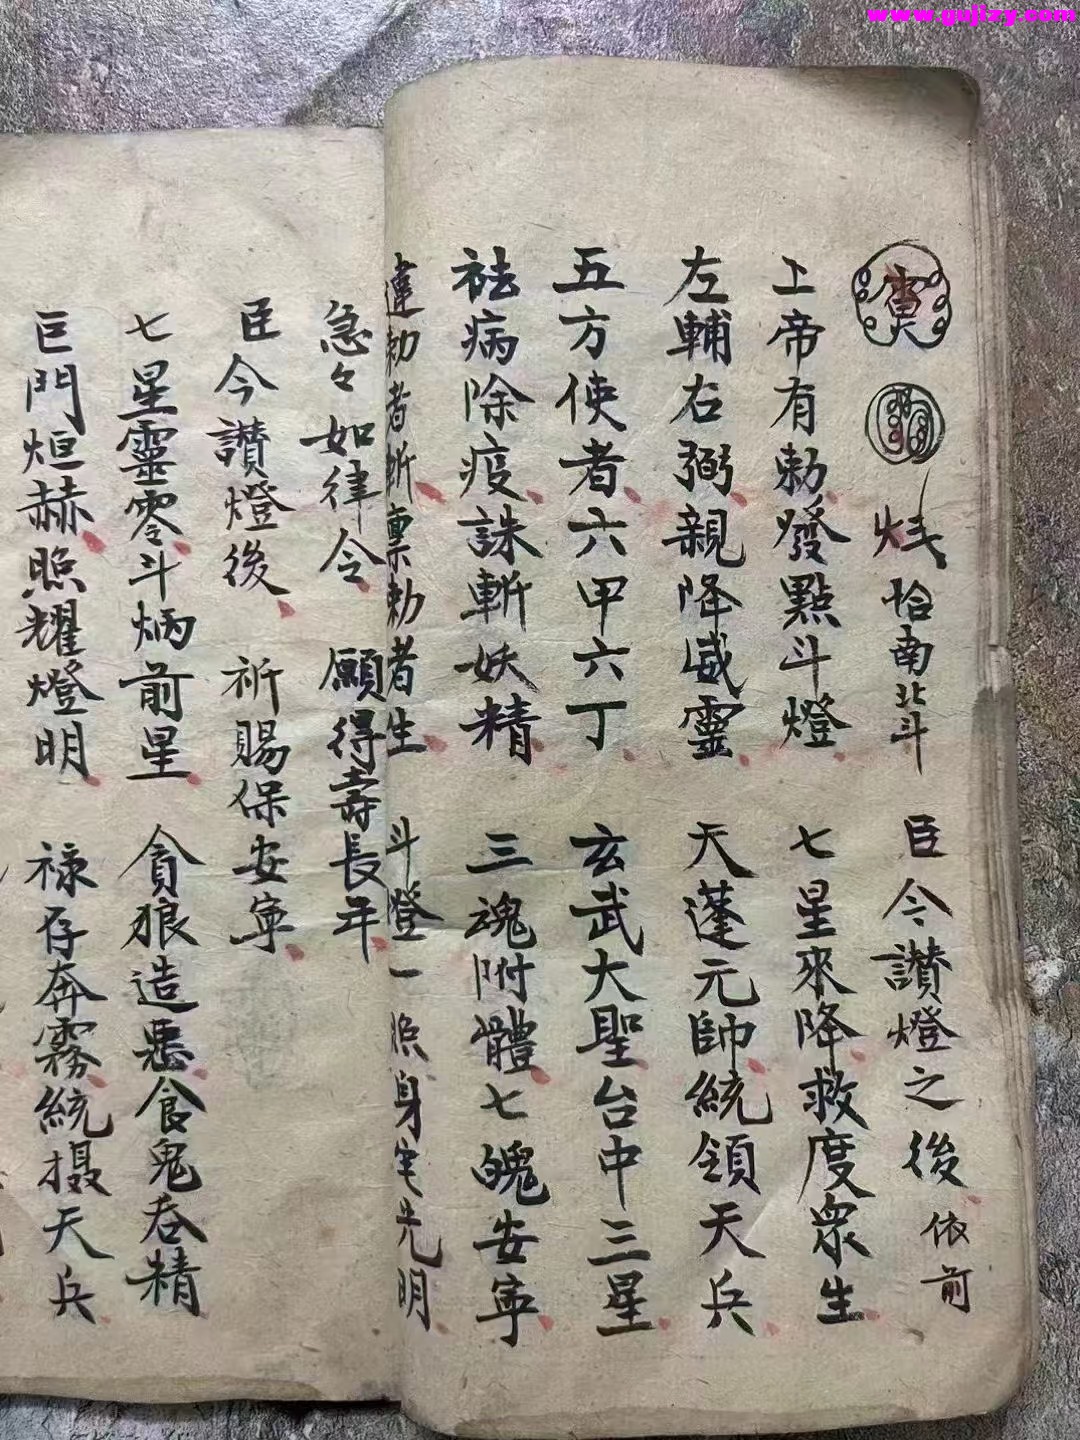 www.gujizy.com
恰南北斗 臣今讃燈之後 依前
上帝有勅發點斗燈 七星來降救度眾生
左輔右弼親降威靈 天蓬元帥統領天兵
五方使者六甲六丁 玄武大聖台中三星
祛病除疫誅斬妖精 三魂附體七魄安寧
違勅者斬稟勅者生 斗燈一照身宅光明
急々如律令 願得壽長年
臣今讃燈後 祈賜保安寧
七星靈零斗炳前星 貪狼造惡食鬼吞精
巨門烜赫照耀燈明 祿存奔霧統摄天兵